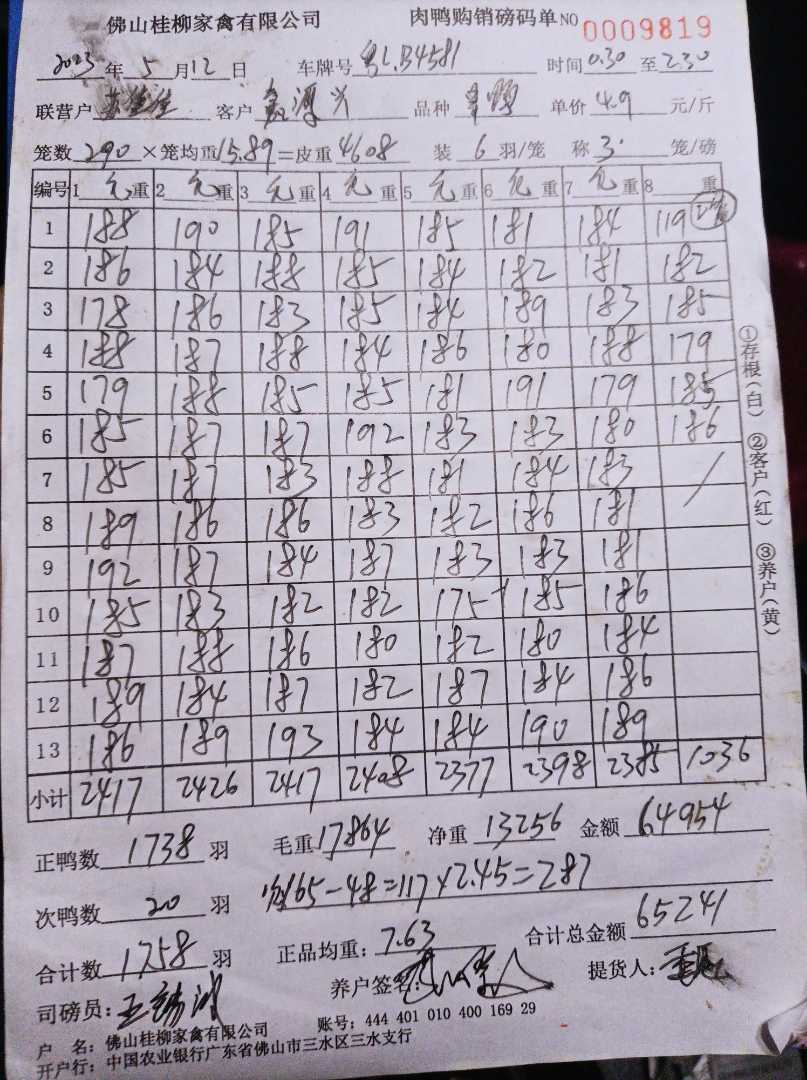 佛山桂柳家禽有限公司 肉鸭购销磅码单 NO 0009819
2023年5月12日 车牌号 粤L.B4581 时间0.30至2.30
联营户 客户 品种 单价4.9元/斤
笼数290×笼均重15.89=皮重4608 装6羽/笼 称3笼/磅
编号 1元重 2元重 3元重 4元重 5元重 6元重 7元重 8重
1 188 190 185 191 185 181 184 119
2 186 184 188 185 184 182 181 182
3 178 186 183 185 184 189 183 185
4 188 187 188 184 186 180 188 179
5 179 188 185 185 181 191 179 185
6 185 187 187 192 183 183 180 186
7 185 187 183 188 181 184 183 /
8 189 186 186 183 182 186 181
9 192 187 184 187 183 183 181
10 185 183 182 182 175 185 186
11 187 188 186 180 182 180 184
12 189 184 187 182 187 184 186
13 186 189 193 184 184 190 189
小计 2417 2426 2417 2408 2377 2398 2385 1036
正鸭数1738羽 毛重17864 净重13256 金额64954
次鸭数20羽 165-48=117×2.45=287
合计数1758羽 正品均重:7.63 合计总金额65241
司磅员: 养户签名: 提货人:
户 名:佛山桂柳家禽有限公司 账号:444 401 010 400 169 29
开户行:中国农业银行广东省佛山市三水区三水支行
①存根(白) ②客户(红) ③养户(黄)